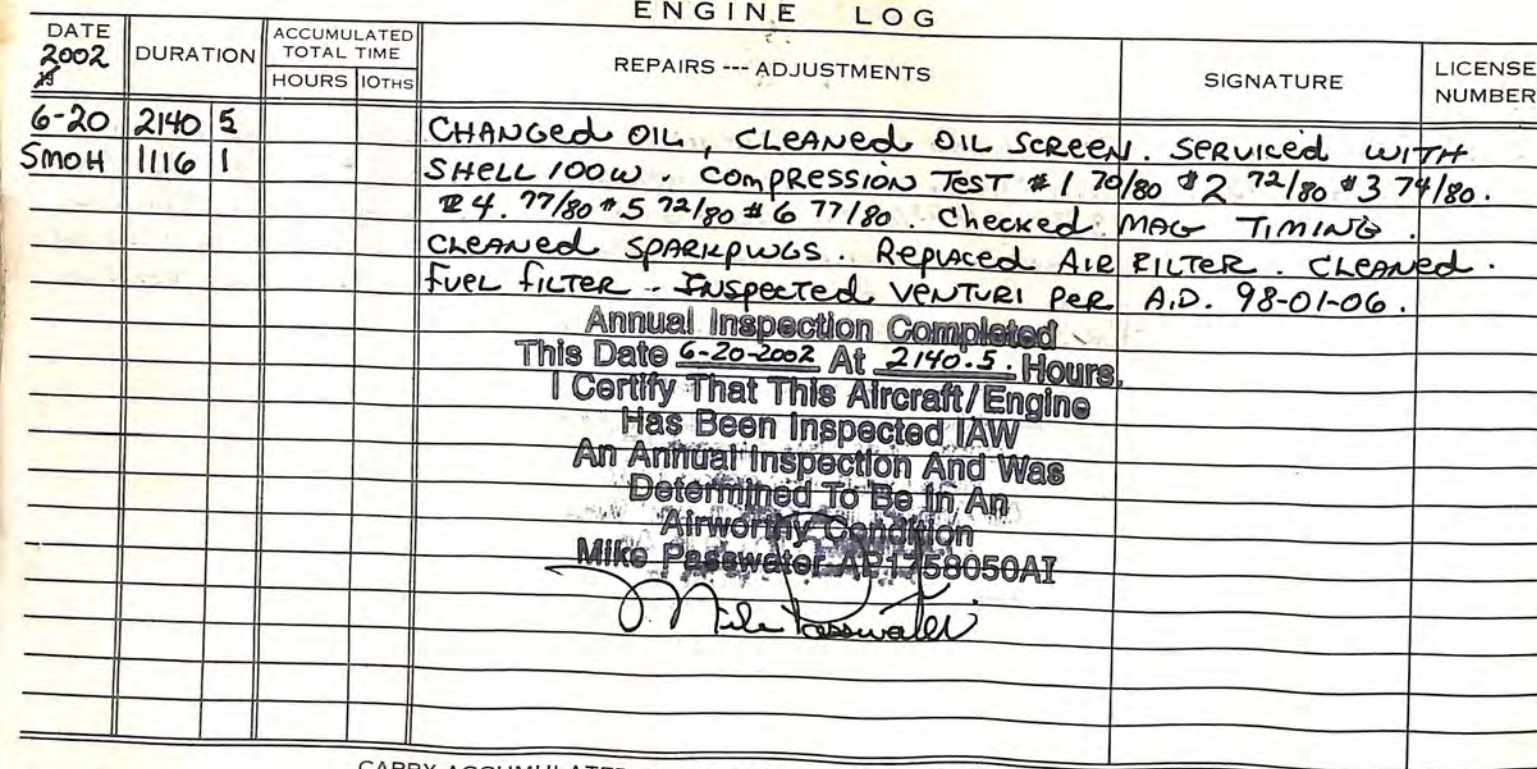 ENGINE LOG
DATE 2002 DURATION ACCUMULATED TOTAL TIME HOURS 10THS REPAIRS --- ADJUSTMENTS SIGNATURE LICENSE NUMBER
6-20 2140 5 CHANGED OIL, CLEANED OIL SCREEN. SERVICED WITH
SMOH 1116 1 SHELL 100W. COMPRESSION TEST #1 70/80 #2 72/80 #3 74/80.
#4. 77/80 #5 72/80 #6 77/80. Checked MAG TIMING.
CLEANED SPARKPLUGS. Replaced AIR FILTER. CLEANED.
FUEL FILTER. INSPECTED VENTURI PER A.D. 98-01-06.
Annual Inspection Completed
This Date 6-20-2002 At 2140.5. Hours.
I Certify That This Aircraft/Engine
Has Been Inspected IAW
An Annual Inspection And Was
Determined To Be In An
Airworthy Condition
Mike Passwater AP1758050AI
Mike Passwater
CARRY ACCUMULATED